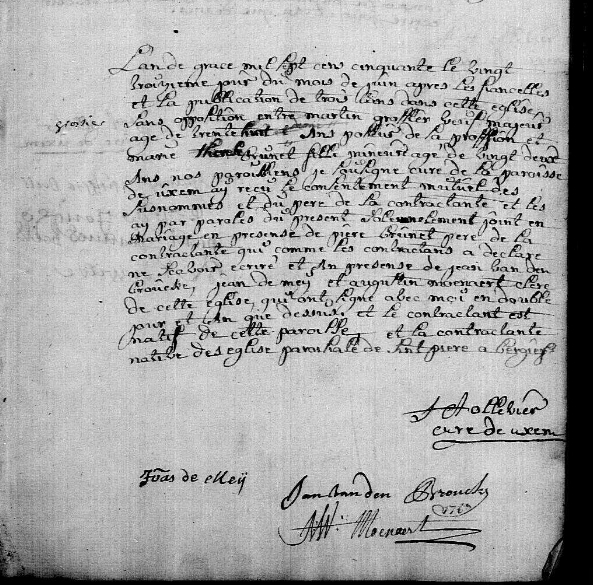 L'an de grace mil sept cens cinquante le vingt
trouzieme jour du mois de juin apres les fiancelles
et la publication de trois bans dans cette eglise
sans opposition entre martin graffler veuf majeur
age de trente huit Ans de la proffion et
marie brunet fille mineur age de vingt deux
Ans nos paroissiens je sousigne cure de la paroisse
de uxem ay reçu le consentement mutuel des
susnommes et du pere de la contractante et les
ay par paroles du present solemnelement joint en
mariage en presense de piere Brunet pere de la
contractante qui comme les contractans a declare
ne scavoir ecrire et en presense de jean van den
brouck, jean de meij et augustin moenaert clerc
de cette eglise, qui ont signe avec moi en double
jour et An que dessus et le contractant est
natif de cette paroisse, et la contractante
native des eglise paroissiale de sint piere a bergues
J Hollebier
cure de uxem
de Meij
Jan Van den Brouck
1750
Moenaert